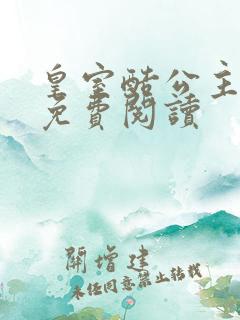 皇室酷公主
免費閱讀
關增建
未經同意禁止轉載